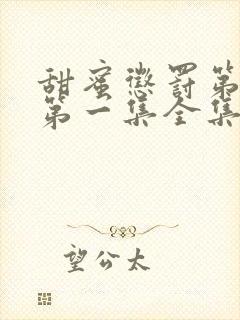 甜蜜惩罚第
第一集全集
望公太